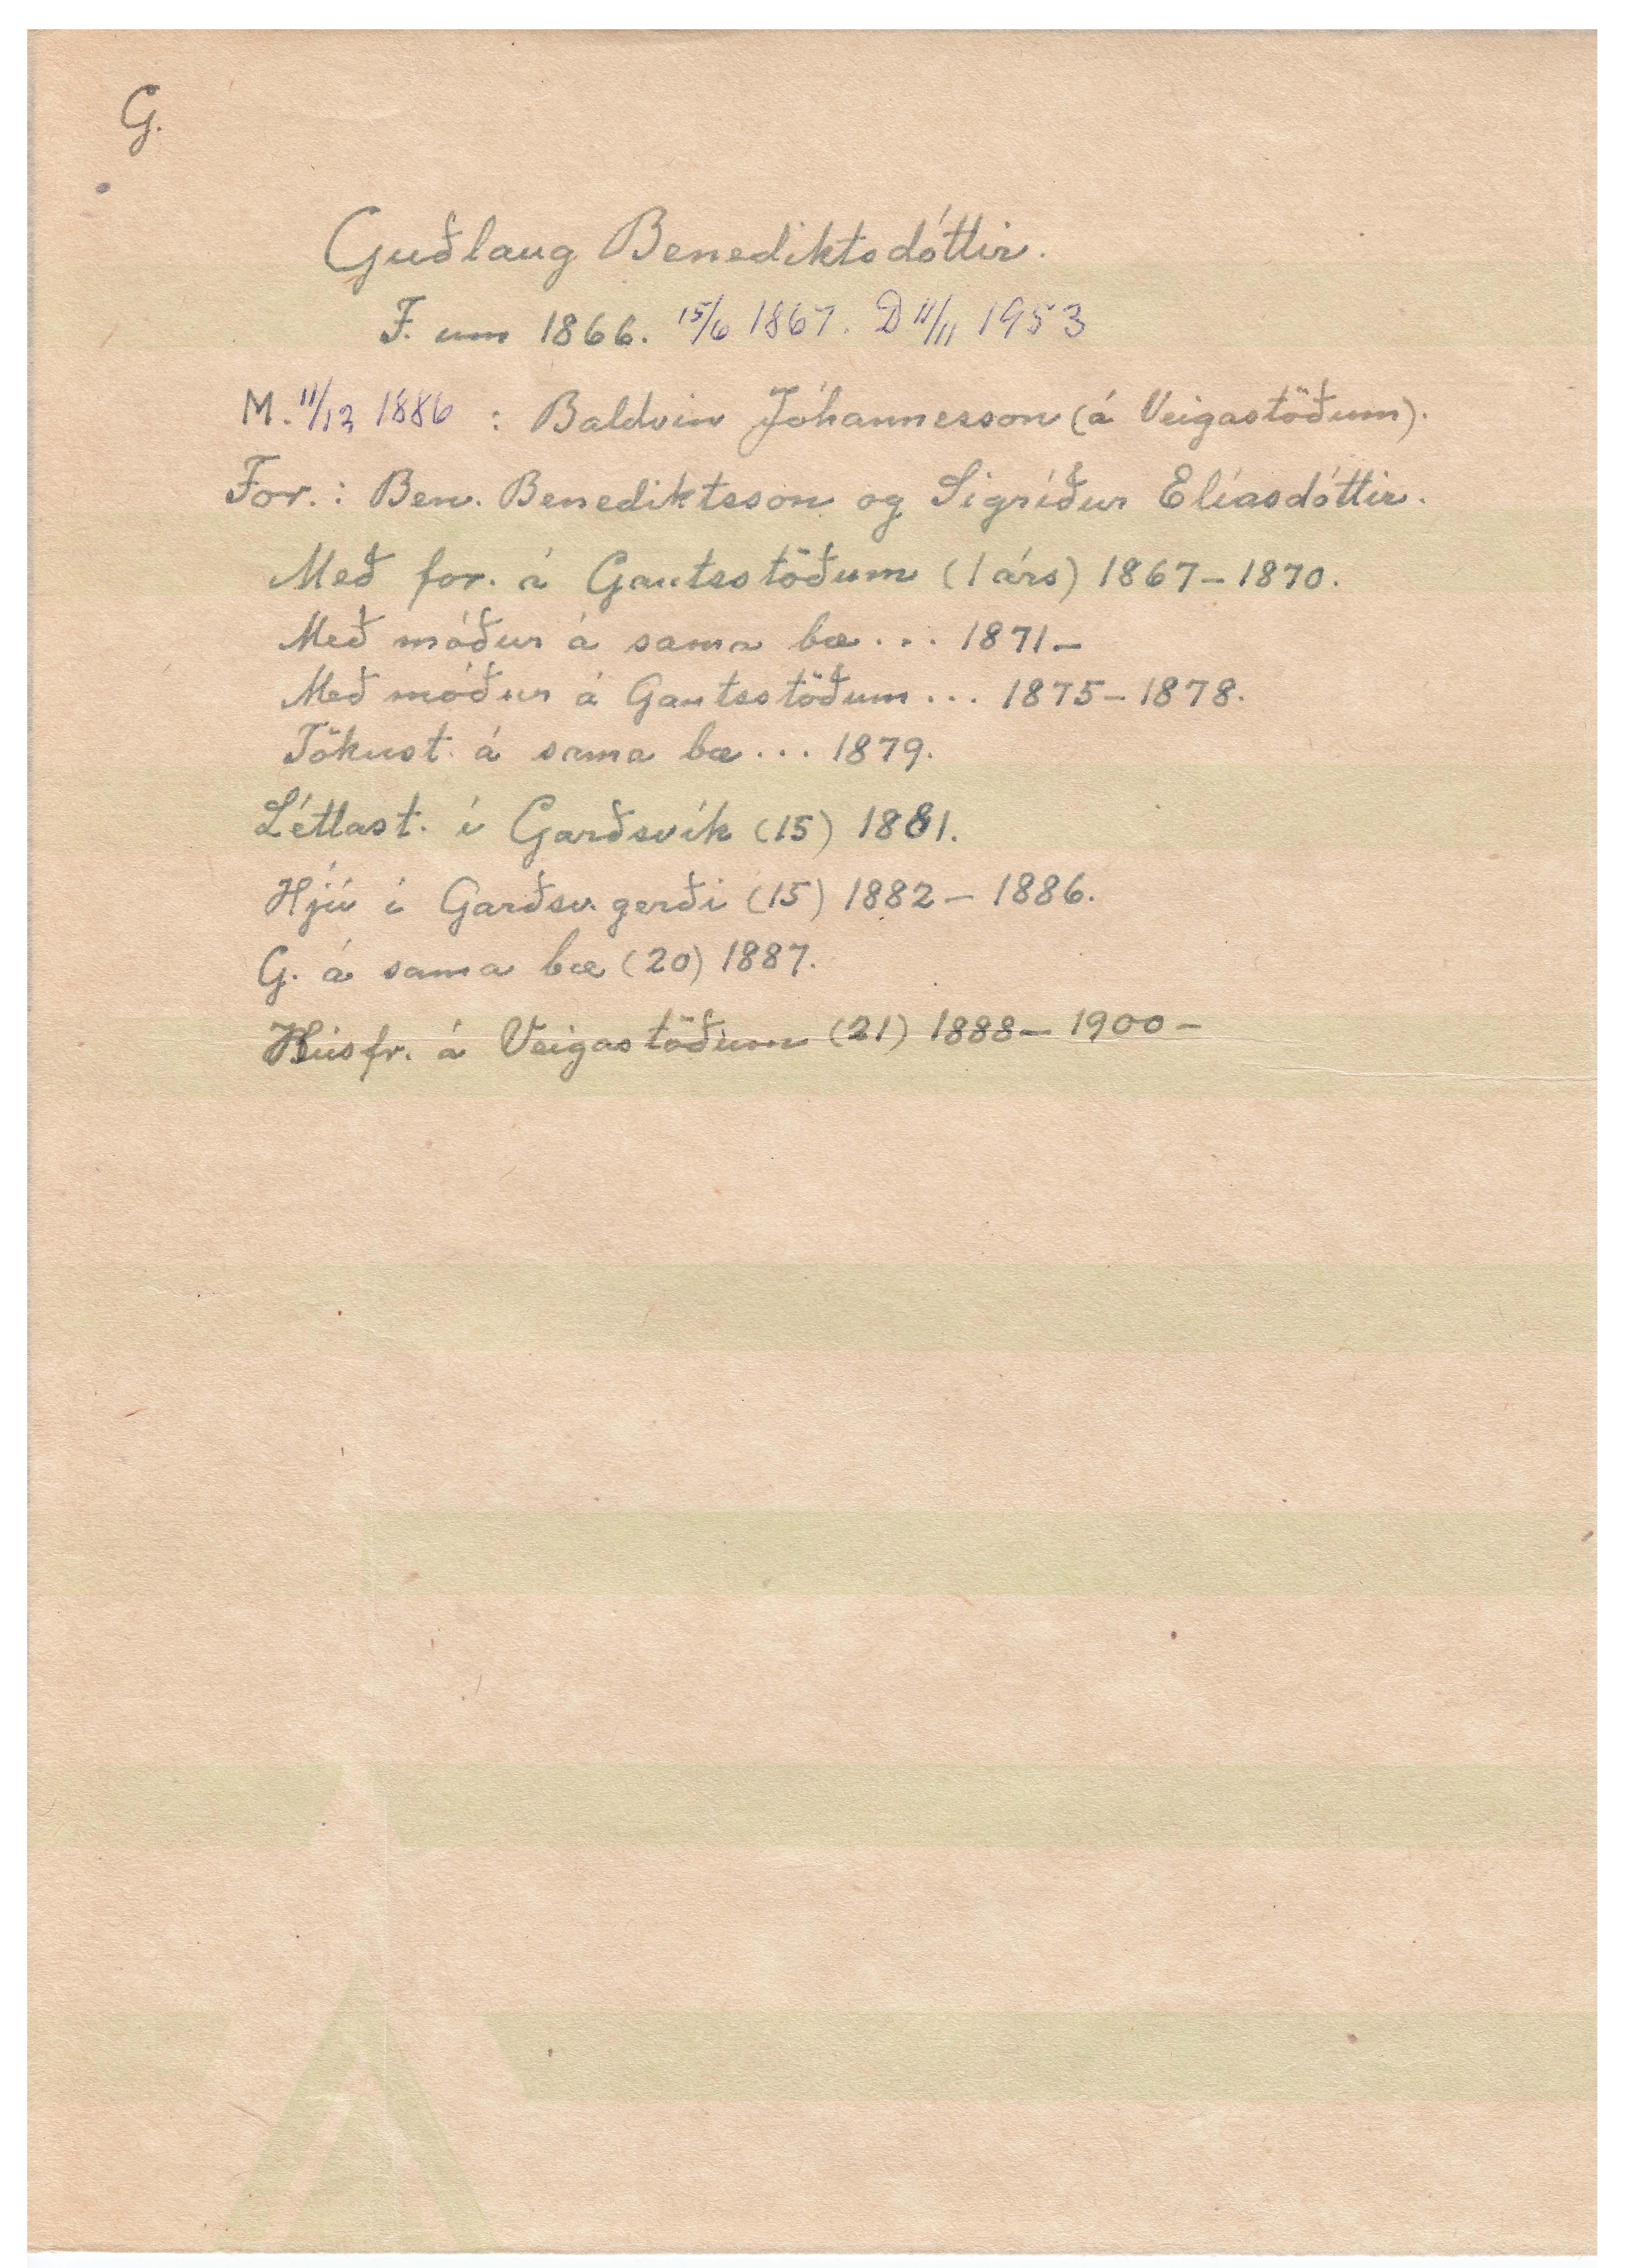 G.
Guðlaug Benediktsdóttir.
F. um 1866. 15/6 1867. D 11/11 1953
M. 11/12 1886 : Baldvin Jóhannesson (á Veigastöðum).
For.: Ben. Benediktsson og Sigríður Elíasdóttir.
Með for. á Gautsstöðum (1 árs) 1867-1870.
Með móður á sama bæ... 1871-
Með móður á Gautsstöðum... 1875-1878.
Tökust. á sama bæ... 1879.
Léttast. í Garðsvík (15) 1881.
Hjú í Garðsv. gerði (15) 1882-1886.
G. á sama bæ (20) 1887.
Húsfr. á Veigastöðum (21) 1888-1900-